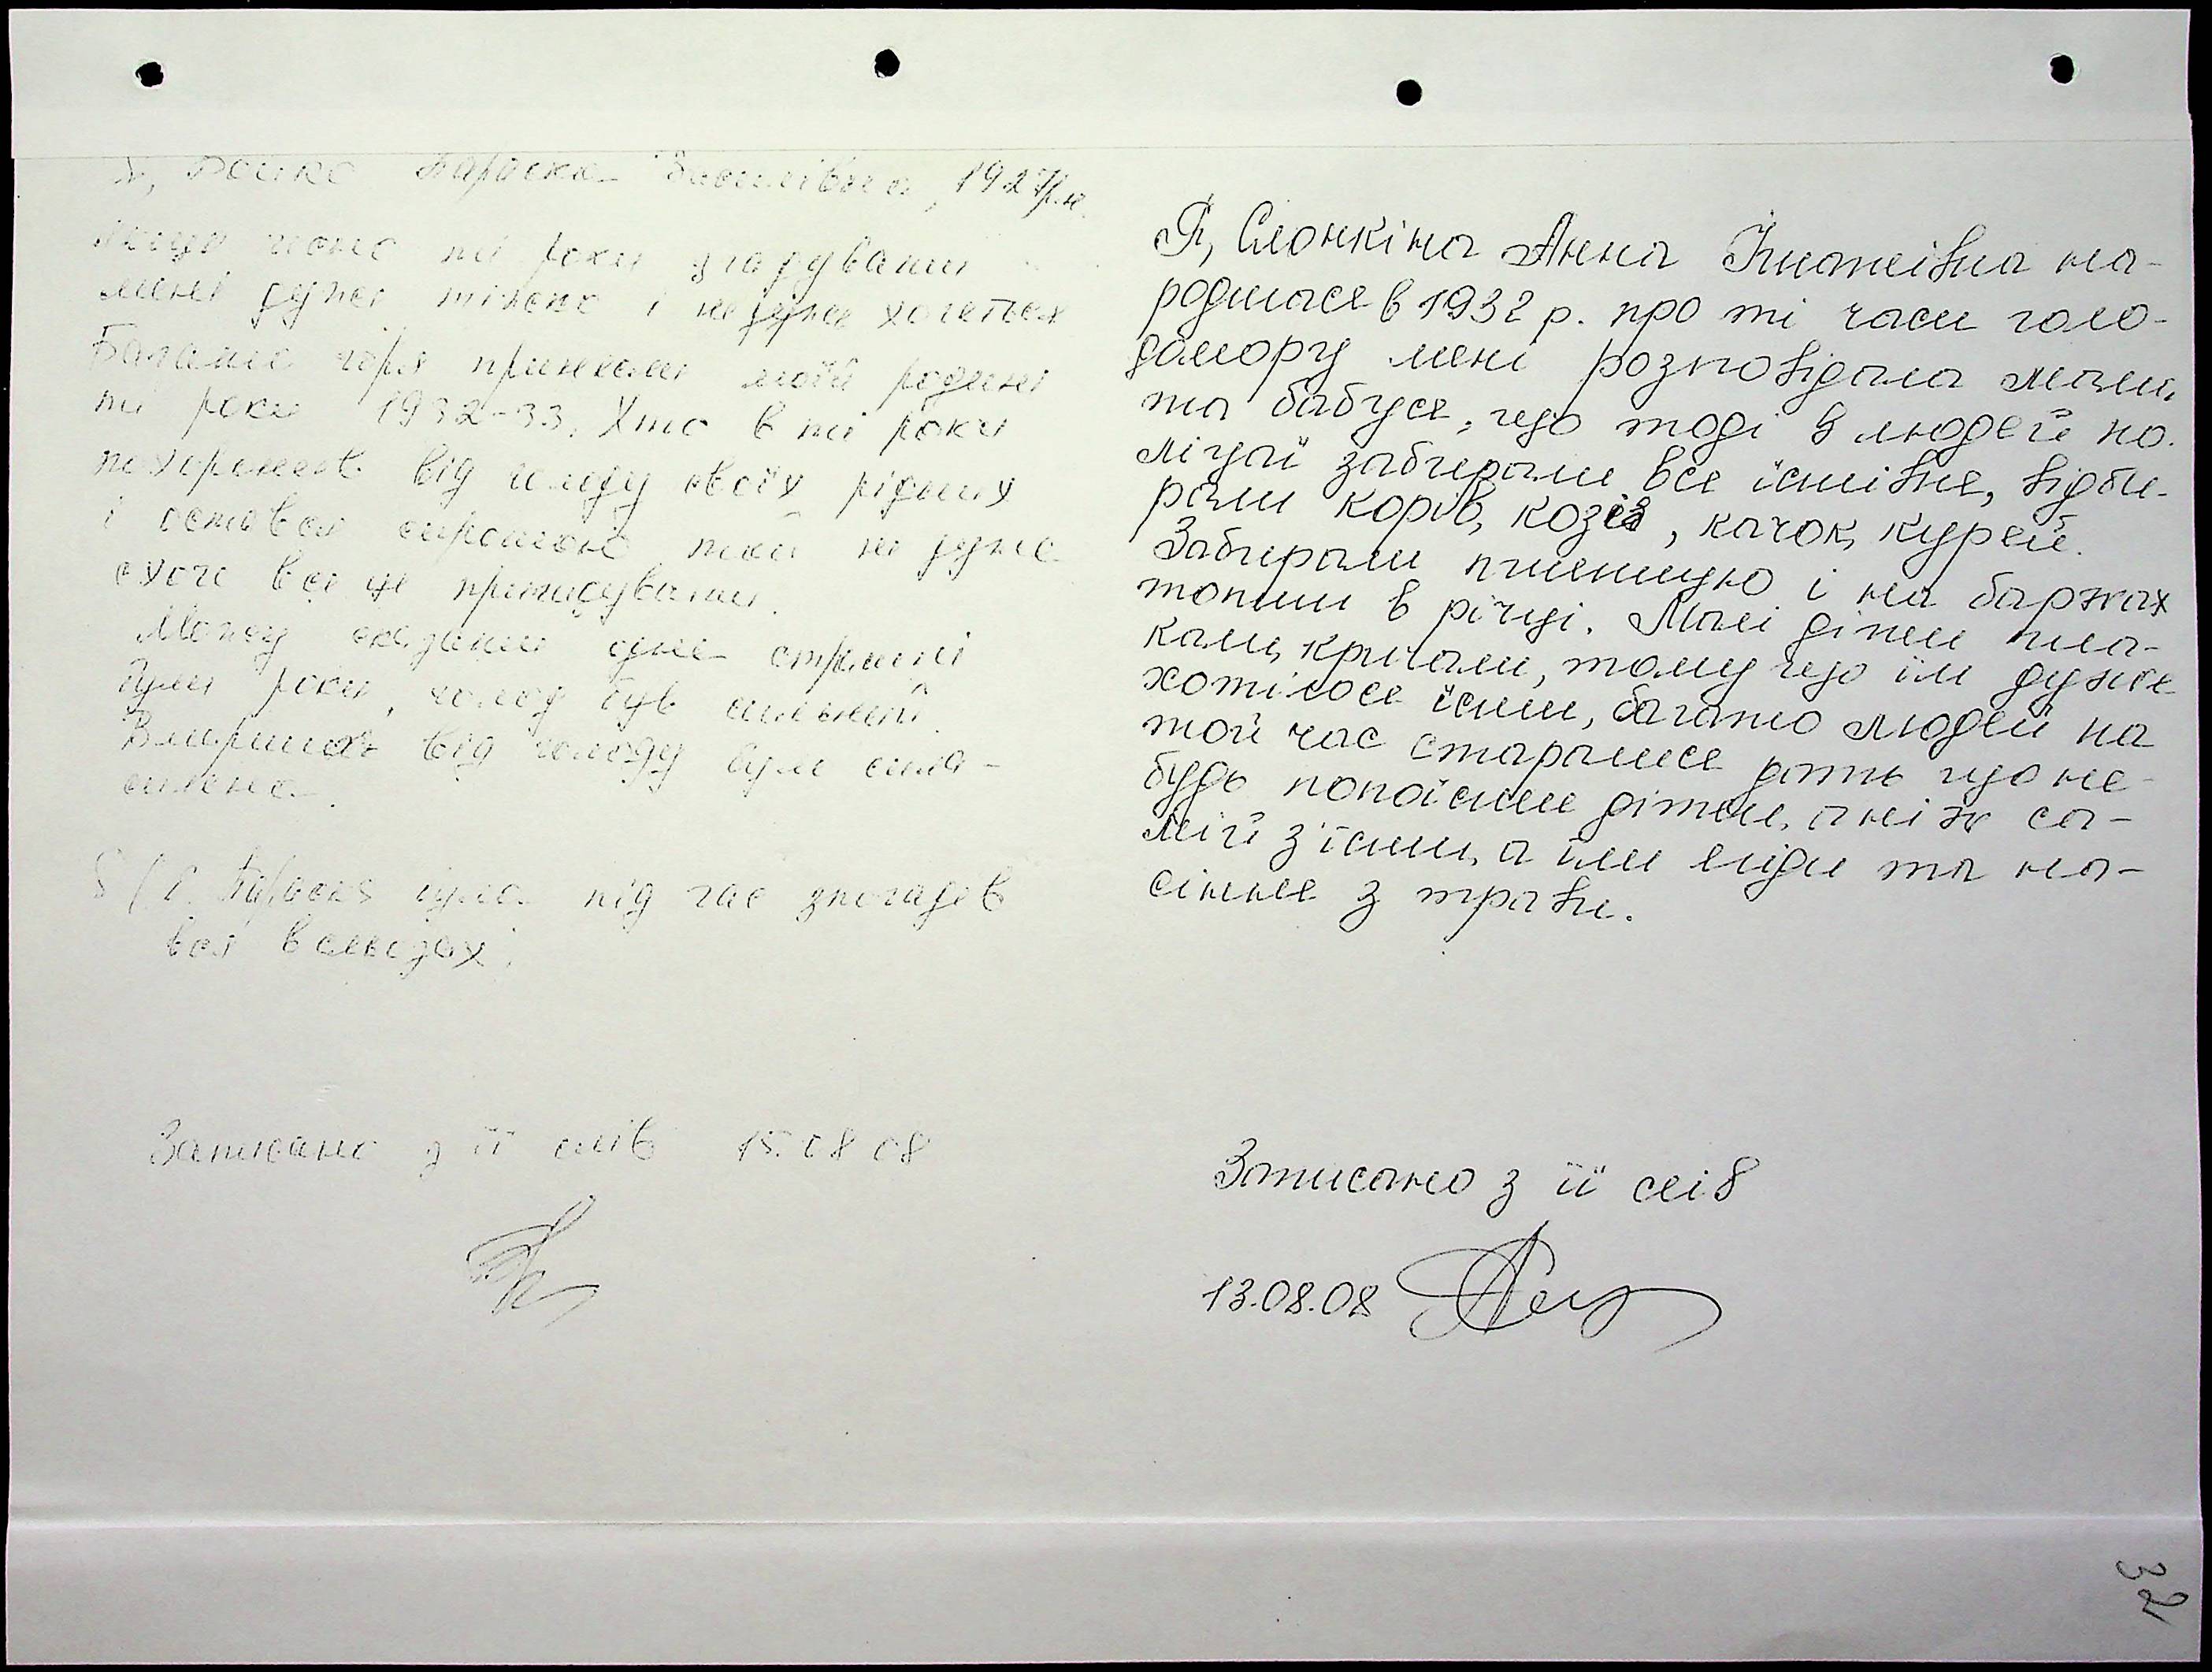 Я, Бойко Параска Василівна, 1927 р.н.
про ті роки згадувати
мені дуже тяжко і не дуже хочеться
Багато горя принесли моїй родині
ті роки 1932-33. Хто в ті роки
похоронив від голоду своїх рідних
і остався сиротою той не дуже
охоче все це
Можу сказати одне страшні
були роки, голод був сильний
Вмерших від голоду були сила-
силена.
Параска була під час згадув
вся в сльозах.
Записано з її слів 15.08 08
Я, Сльонкіна Анна Гнатівна на-
родилася в 1932 р. про ті часи голо-
доморy мені розповідала мати,
та бабуся, що тоді в людей по-
ліцаї забирали все їстівне, відби-
рали корів, козів, качок, курей.
Забирали пшеницю і на баржах
топили в річці. Малі діти пла-
кали, кричали, тому що їм дуже
хотілося їсти, багато людей на
той час старалися дать що не-
будь попоїсти дітям, аніж са-
мій з'їсти, а їли липи та на-
сіння з трави.
Записано з її слів
13.08.08
32